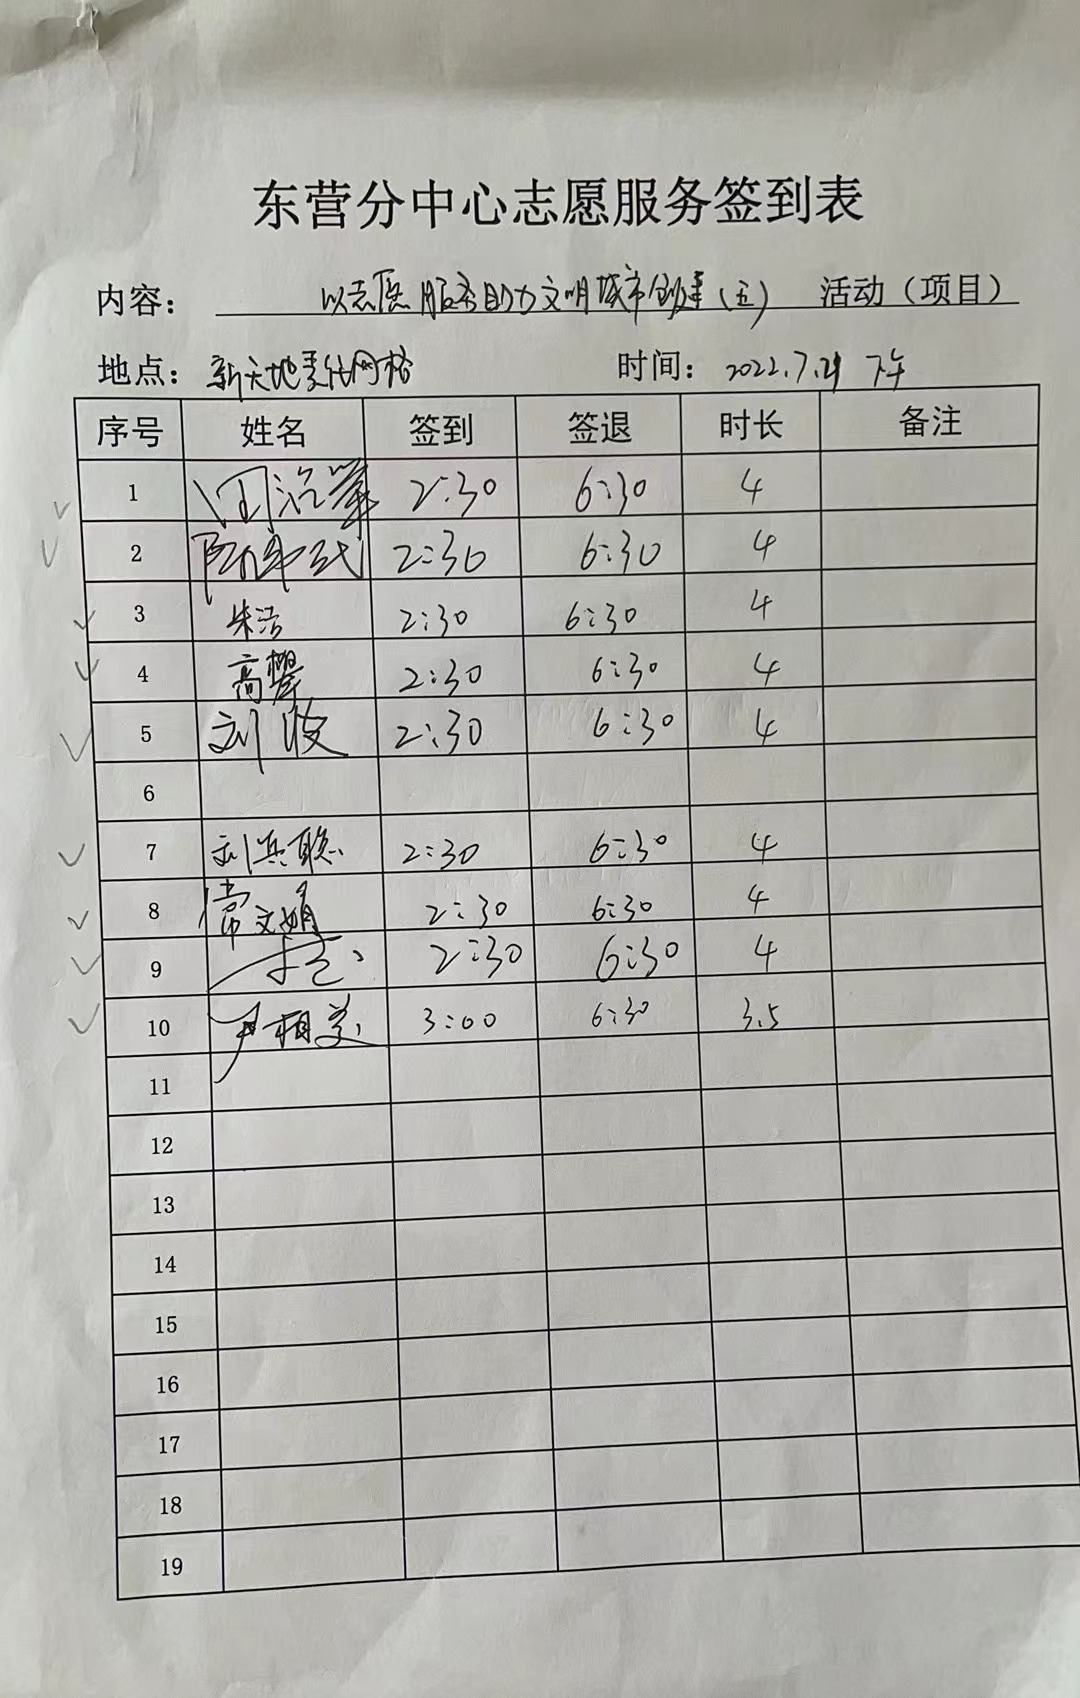 东营分中心志愿服务签到表
内容： 以志愿服务助力文明城市创建（五） 活动（项目）
地点： 新天地责任网格 时间： 2022.7.21 下午
序号 姓名 签到 签退 时长 备注
1 2:30 6:30 4
2 2:30 6:30 4
3 朱洁 2:30 6:30 4
4 高攀 2:30 6:30 4
5 刘波 2:30 6:30 4
6
7 刘兵聪 2:30 6:30 4
8 常文娟 2:30 6:30 4
9 2:30 6:30 4
10 尹相美 3:00 6:30 3.5
11
12
13
14
15
16
17
18
19